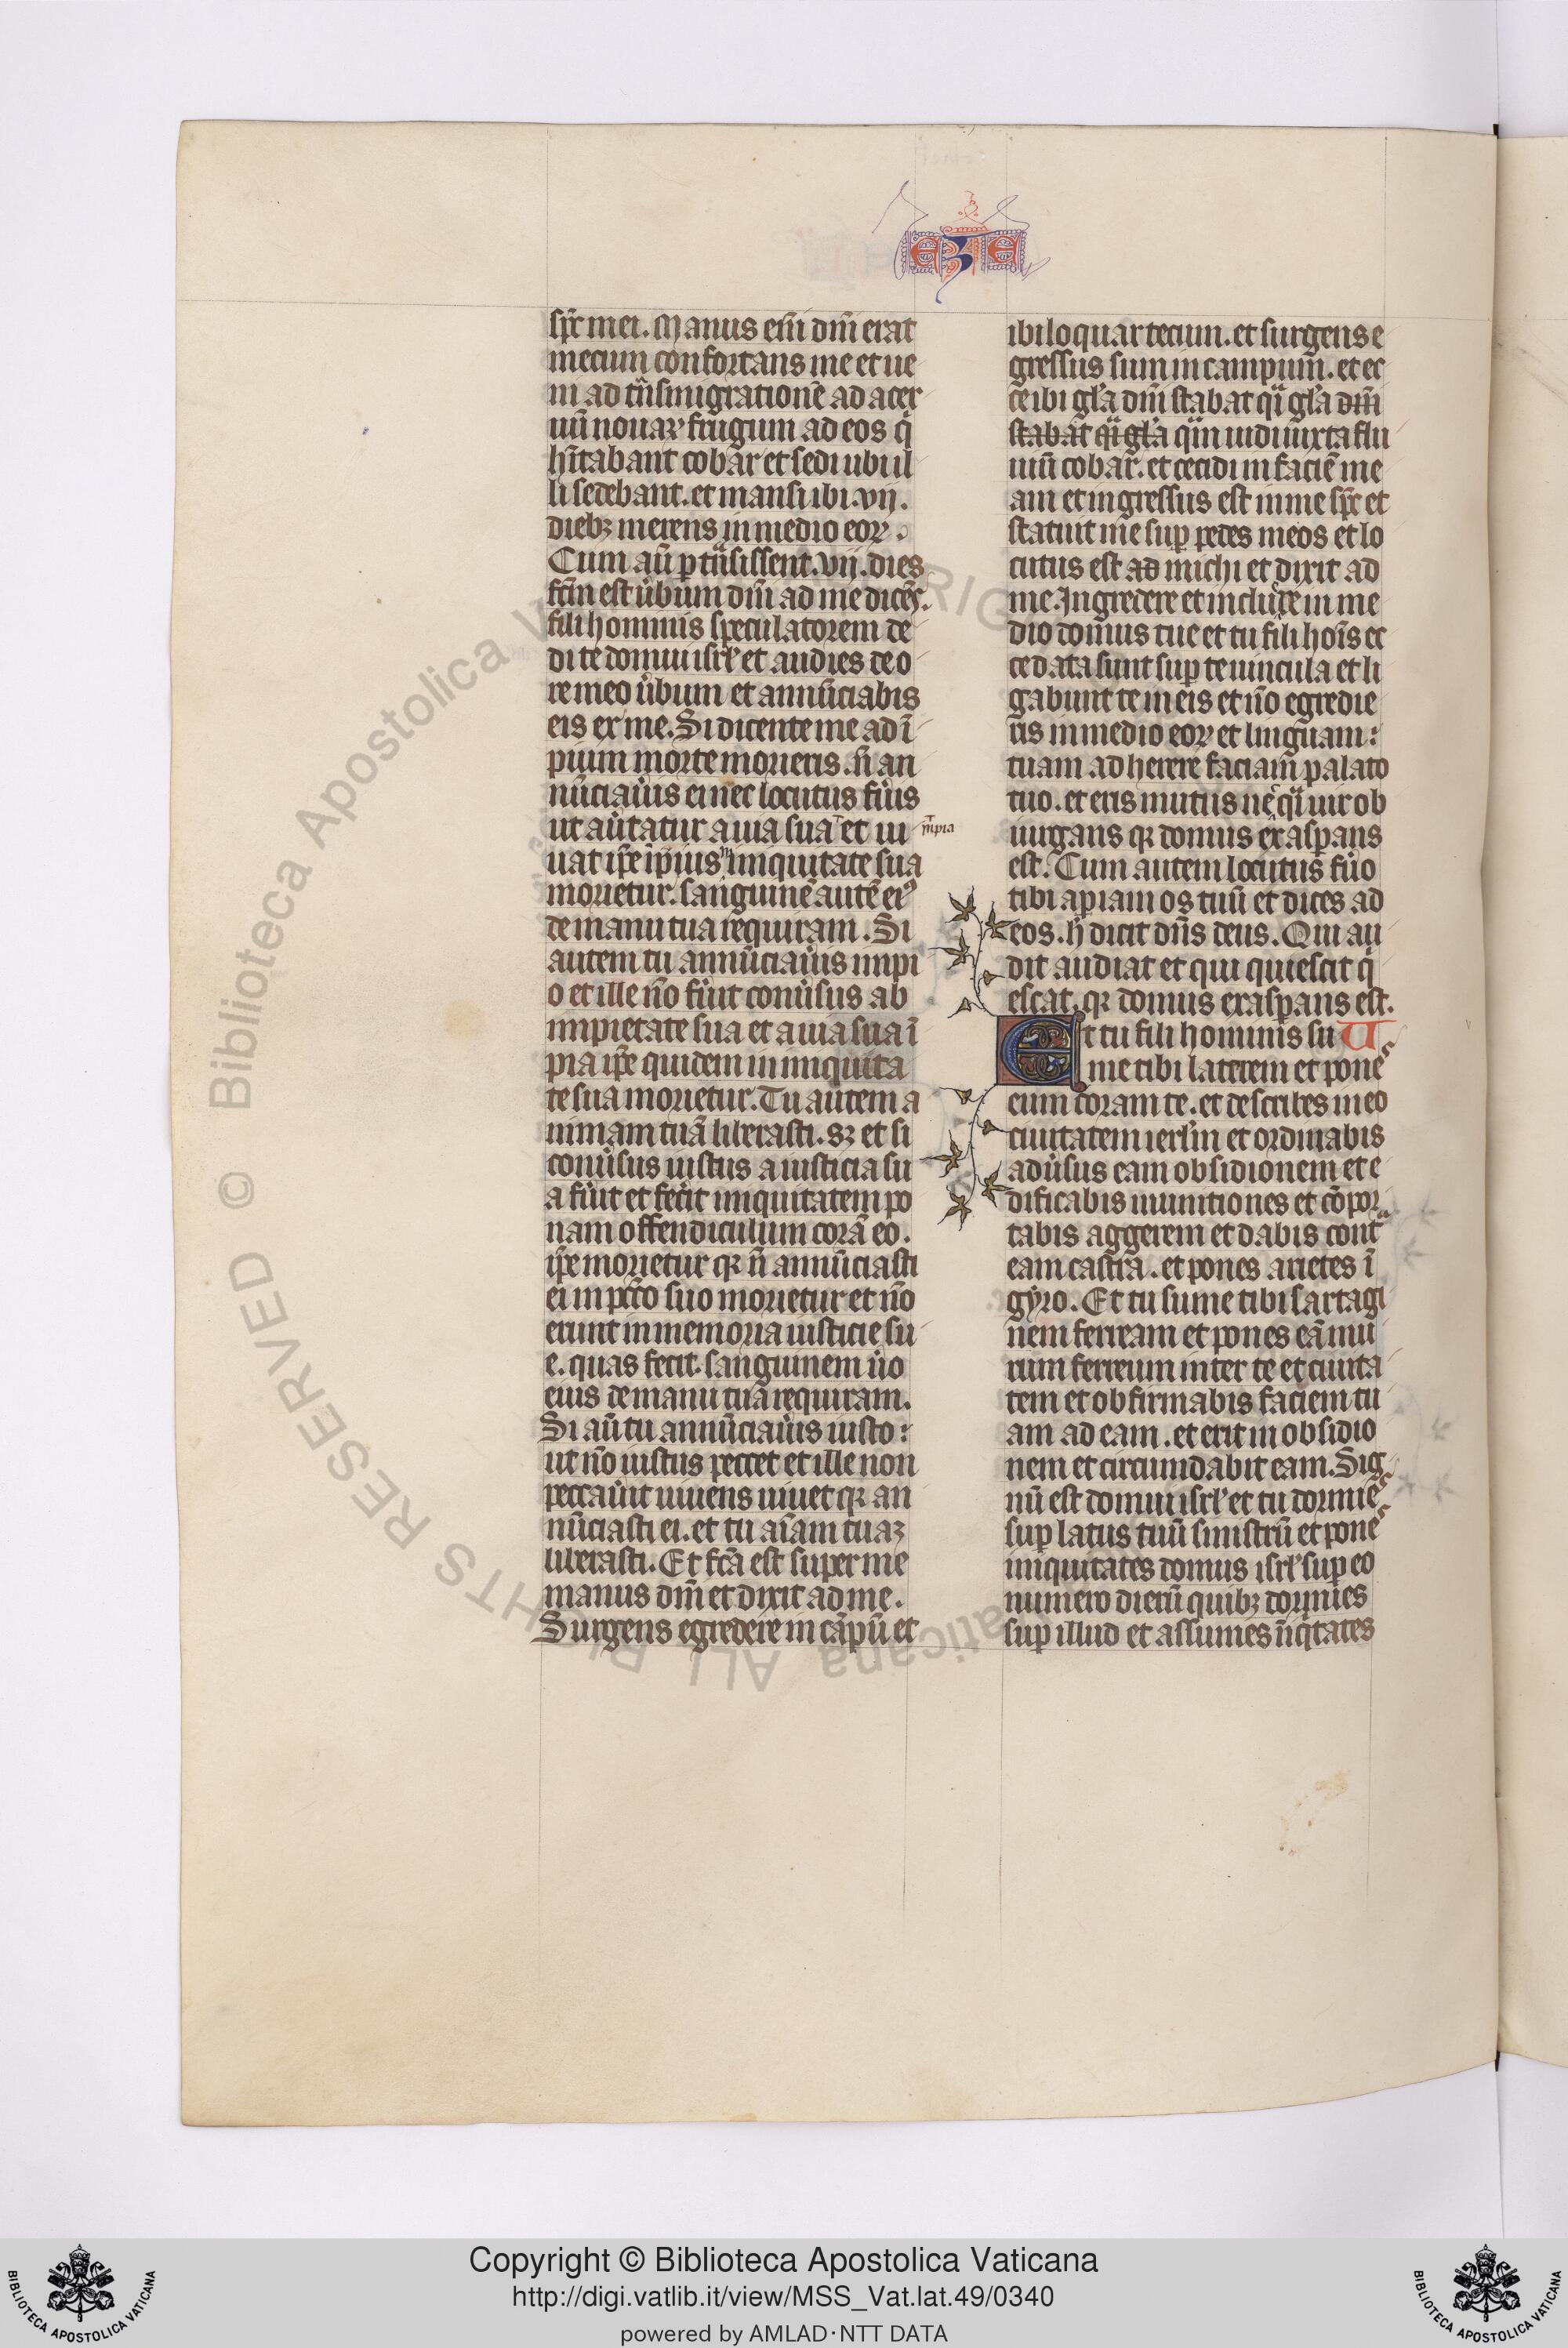 EZE
sp̄c mei. Manus em̄ dn̄i erat
mecum confortans me et ue
ni ad tn̄smigrationē ad acer
uū nouaꝝ frugum ad eos q̇
hītabant cobar et sedi ubi il
li sedebant. et mansi ibi .vij.
diebꝫ merens in medio eoꝝ.
Cum aū ꝑtn̄sissent .vij. dies
fc̄m est u̇bum dn̄i ad me dicēs.
fili hominis speculatorem de
di te domui isrl̄ et audies de o
re meo u̇bum et annūciabis
eis ex me. Si dicente me ad ī
pium morte morieris. n̄ an
nūciau̇is ei nec locutus fu̇is
ut au̇tatur a uia sua et ui
īmpia
uat ip̄e īpius in iniquitate sua
morietur. sanguinē autē eiꝰ
de manu tua requiram. Si
autem tu annūciau̇is impi
o et ille no̅ fu̇it conu̇sus ab
impietate sua et a uia sua ī
pia ip̄e quidem in iniquita
te sua morietur. Tu autem a
nimam tuā liberasti. sꝫ et si
conu̇sus iustus a iusticia su
a fu̇it et fecit iniquitatem po
nam offendiculum corā eo.
ip̄e morietur qꝛ n̄ annūciasti
ei in pctō suo morietur et no̅
erunt in memoria iusticie su
e. quas fecit. sanguinem u̇o
eius de manu tua requiram.
Si aū tu annūciau̇is iusto:
ut no̅ iustus peccet et ille non
peccau̇it uiuens uiuet qꝛ an
nūciasti ei. et tu aīam tuaꝫ
liberasti. Et fc̄a est super me
manus dn̄i et dixit ad me.
Surgens egredere in cāpū et
ibi loquar tecum. et surgens e
gressus sum in campum. et ec
ce ibi gl̄a dn̄i stabat qi̇ gl̄a dn̄i
stabat qi̇ gl̄a qi̇n uidi iuxta flu
uiū cobar. et cecidi in faciē me
am et ingressus est in me sp̄c et
statuit me suꝑ pedes meos et lo
cutus est ad michi et dixit ad
me. Ingredere et includere in me
dio domus tue et tu fili hoīs ec
ce data sunt suꝑ te uincula et li
gabunt te in eis et no̅ egredie
ris in medio eoꝝ et linguam:
tuam adherere faciam palato
tuo. et eris mutus nec̣ qi̇ uir ob
iurgans qꝛ domus exasꝑans
est. Cum autem locutus fu̇o
tibi aꝑiam os tuū et dices ad
eos. h̄ dicit dn̄s deus. Qui au
dit audiat et qui quiescit q̇
escat. qꝛ domus exasꝑans est.
Et tu fili hominis su
me tibi laterem et pones
eum coram te. et describes in eo
ciuitatem ierl̄m et ordinabis
adu̇sus eam obsidionem et e
dificabis munitiones et cōpor
tabis aggerem et dabis contᵃ
eam castra. et pones arietes ī
gyro. Et tu sume tibi sartagi
nem ferream et pones eā mu
rum ferreum inter te et ciuita
tem et obfirmabis faciem tu
am ad eam. et erit in obsidio
nem et circumdabit eam. Sig
nū est domui isrl̄ et tu dormies
suꝑ latus tuū sinistrū et pones
iniquitates domus isrl̄ suꝑ eo
numero dierū quibꝫ dormies
suꝑ illud et assumes īiq̇tates
Copyright © Biblioteca Apostolica Vaticana
http://digi.vatlib.it/view/MSS_Vat.lat.49/0340
powered by AMLAD·NTT DATA
BIBLIOTECA APOSTOLICA VATICANA
BIBLIOTECA APOSTOLICA VATICANA
© Biblioteca Apostolica Vaticana ALL RIGHTS RESERVED